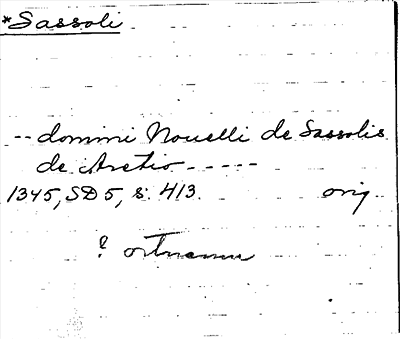 *Sassoli
-- domini Nouelli de Sassolis
de Aretio -----
1345, SD 5, s. 413. orig.
? ortnamn